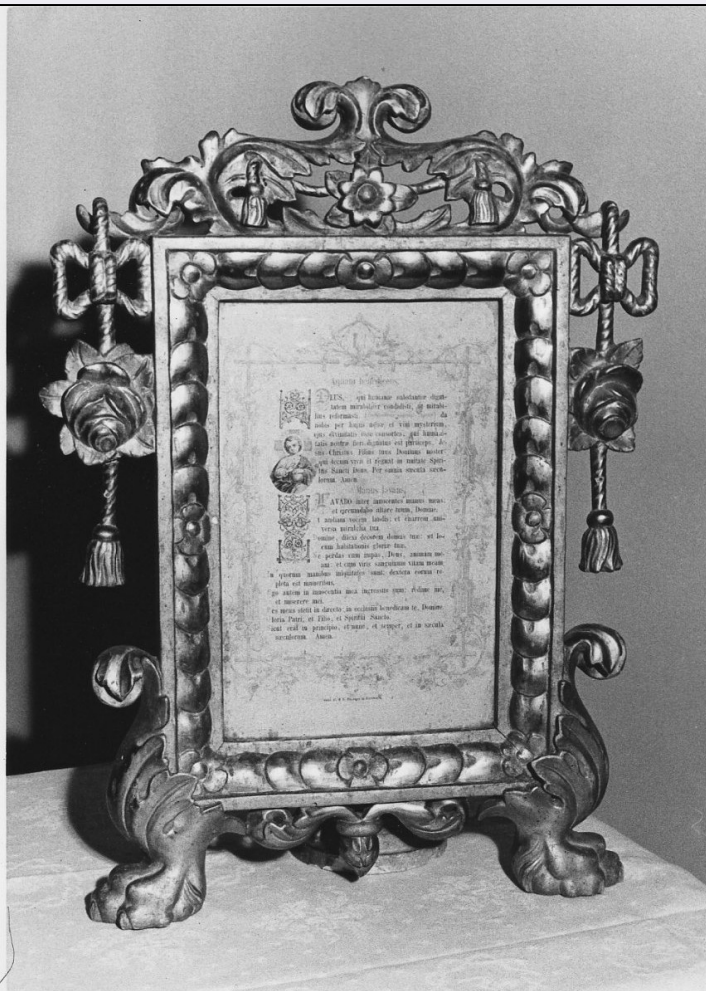 DEUS, qui humanae substantiae digni-
tatem mirabiliter condidisti, et mirabi-
lius reformasti da
nobis per hujus aquae et vini mysterium,
ejus divinitatis esse consortes, qui humani-
tatis nostrae fieri dignatus est particeps, Je-
sus Christus Filius tuus Dominus noster:
qui tecum vivit et regnat in unitate Spiri-
tus Sancti Deus. Per omnia saecula saecu-
lorum. Amen.
LAVABO inter innocentes manus meas:
et circumdabo altare tuum, Domine.
t audiam vocem laudis: et enarrem uni-
versa mirabilia tua.
omine, dilexi decorem domus tuae: et lo-
cum habitationis gloriae tuae.
Ne perdas cum impiis, Deus, animam me-
am: et cum viris sanguinum vitam meam
n quorum manibus iniquitates sunt: dextera eorum re-
pleta est muneribus.
go autem in innocentia mea ingressus sum: redime me,
et miserere mei.
es meus stetit in directo: in ecclesiis benedicam te, Domine
loria Patri, et Filio, et Spiritui Sancto.
icut erat in principio, et nunc, et semper, et in saecula
saeculorum. Amen.